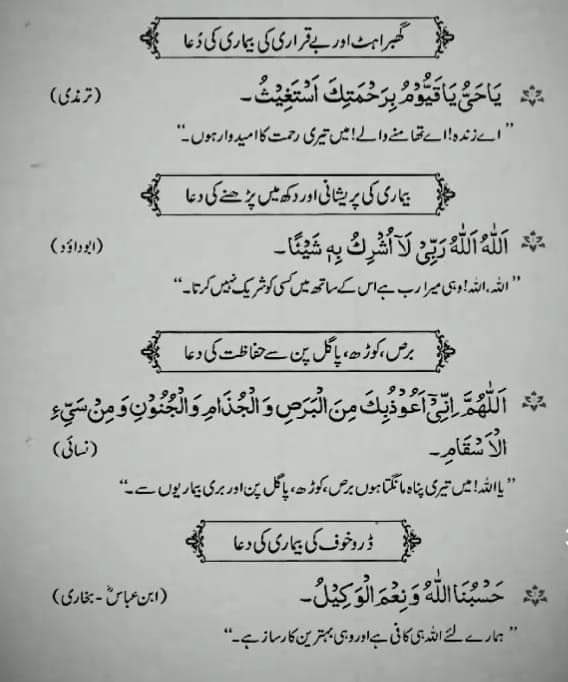 گھبراہٹ اور بے قراری کی بیماری کی دُعا
یَا حَیُّ یَا قَیُّوْمُ بِرَحْمَتِكَ اَسْتَغِیْثُ۔ (ترمذی)
”اے زندہ! اے تھامنے والے! میں تیری رحمت کا امیدوار ہوں۔“
بیماری کی پریشانی اور دکھ میں پڑھنے کی دعا
اَللّٰهُ اَللّٰهُ رَبِّیْ لَآ اُشْرِكُ بِهٖ شَیْئًا۔ (ابوداؤد)
”اللہ، اللہ! وہی میرا رب ہے اس کے ساتھ میں کسی کو شریک نہیں کرتا۔“
برص، کوڑھ، پاگل پن سے حفاظت کی دعا
اَللّٰهُمَّ اِنِّیْٓ اَعُوْذُبِكَ مِنَ الْبَرَصِ وَالْجُذَامِ وَالْجُنُوْنِ وَمِنْ سَیِّءِ
الْاَسْقَامِ۔ (نسائی)
”یا اللہ! میں تیری پناہ مانگتا ہوں برص، کوڑھ، پاگل پن اور بری بیماریوں سے۔“
ڈر و خوف کی بیماری کی دعا
حَسْبُنَا اللّٰهُ وَنِعْمَ الْوَكِیْلُ۔ (ابن عباسؓ - بخاری)
”ہمارے لئے اللہ ہی کافی ہے اور وہی بہترین کارساز ہے۔“